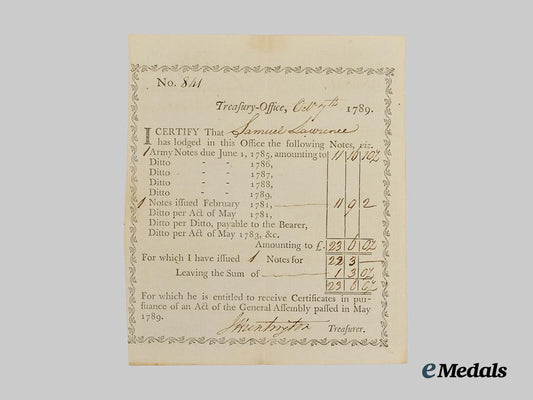 No. 841
Treasury-Office, Oct 7th 1789.
I CERTIFY That Samuel Lawrence
has lodged in this Office the following Notes, viz.
1 Army Notes due June 1, 1785, amounting to 11
Ditto - - 1786,
Ditto - - 1787,
Ditto - - 1788,
Ditto - - 1789,
1 Notes issued February 1781, 11 9 2
Ditto per Act of May 1781,
Ditto per Ditto, payable to the Bearer,
Ditto per Act of May 1783, &c.
Amounting to £. 23 0
For which I have issued 1 Notes for 22 3
Leaving the Sum of 1 3
23 6
For which he is entitled to receive Certificates in pur-
suance of an Act of the General Assembly passed in May
1789.
JHuntington Treasurer.
eMedals